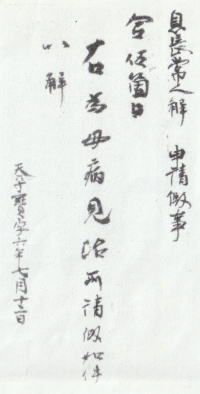 息長常人解 申請假事
合伍箇日
右為母病見治所請假如件
以解
天平寳字六年七月十二日